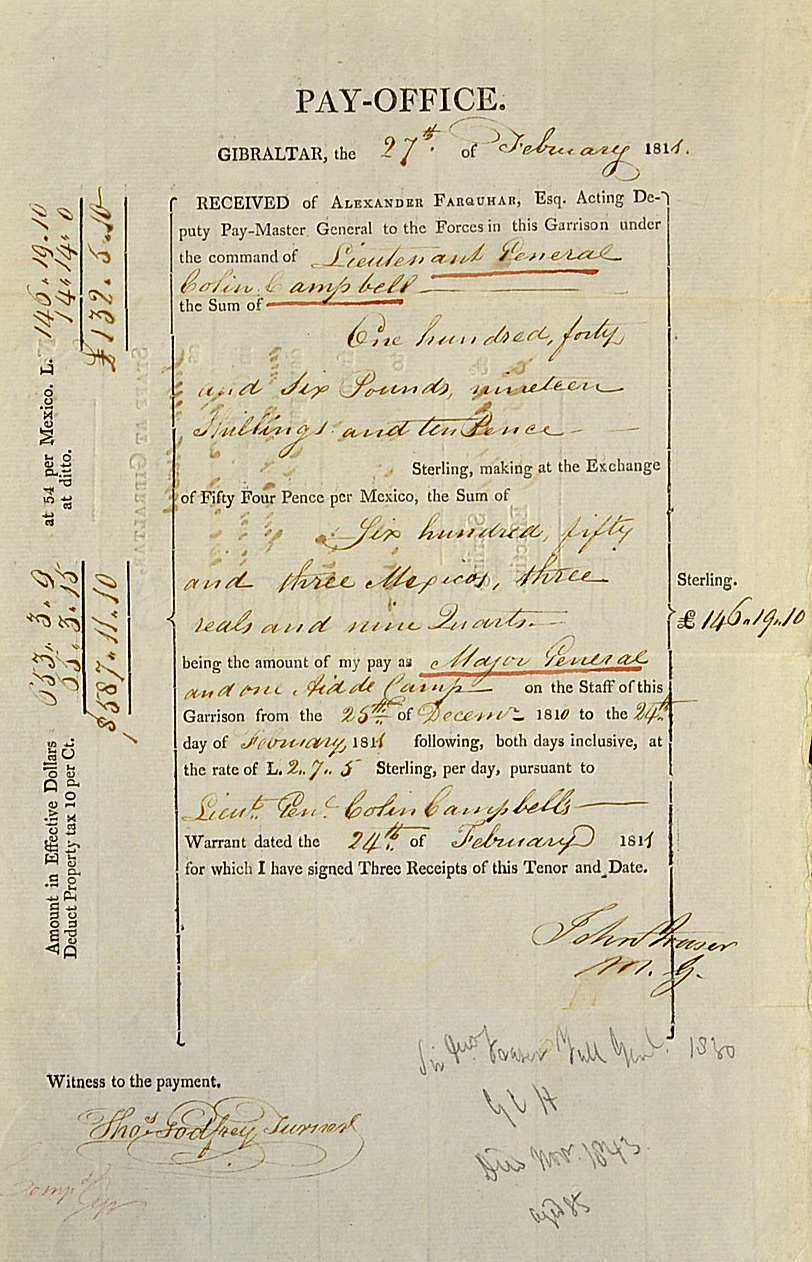 PAY-OFFICE.
GIBRALTAR, the 27th. of February 1811.
RECEIVED of ALEXANDER FARQUHAR, Esq. Acting De-
puty Pay-Master General to the Forces in this Garrison under
the command of Lieutenant General
Colin Campbell
the Sum of
One hundred, forty
and Six Pounds, nineteen
Shillings and ten Pence
Sterling, making at the Exchange
of Fifty Four Pence per Mexico, the Sum of
Six hundred, fifty
and three Mexicos, three
reals and nine Quarts.
Sterling.
£ 146„19„10
being the amount of my pay as Major General
and one Aid de Camp on the Staff of this
Garrison from the 25th. of Decemr. 1810 to the 24th
day of February, 1811 following, both days inclusive, at
the rate of L. 2„7„5 Sterling, per day, pursuant to
Lieut. Genl. Colin Campbells
Warrant dated the 24th. of February 1811
for which I have signed Three Receipts of this Tenor and Date.
John Fraser
M. G.
Amount in Effective Dollars 653„3„9 at 54 per Mexico. L. 146„19„10
Deduct Property tax 10 per Ct. 65„3„15 at ditto. 14„14„0
$587„11„10 £132„5„10
STAFF AT GIBRALTAR.
Witness to the payment.
Thos. Godfrey Turner
Sir Jno. Fraser Full Genl. 1830
G C H
Dies Novr. 1843.
aged 85